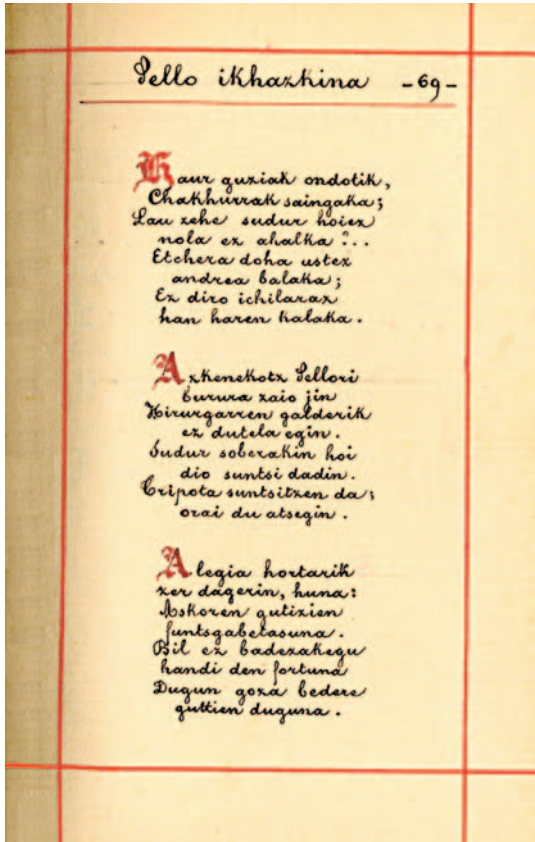 Pello ikhazkina -69-
Haur guziak ondotik,
Chakhurrak saingaka;
Lau zehe sudur hoiez
nola ez ahalka?..
Etchera doha ustez
andrea balaka;
Ez diro ichilaraz
han haren kalaka.
Azkenekotz Pellori
burura zaio jin
Hirurgarren galderik
ez dutela egin.
Sudur soberakin hoi
dio suntsi dadin.
Tripota suntsitzen da;
orai du atsegin.
Alegia hortarik
zer dagerin, huna:
Askoren gutizien
funtsgabetasuna.
Bil ez badezakegu
handi den fortuna
Dugun goza bedere
guttien duguna.